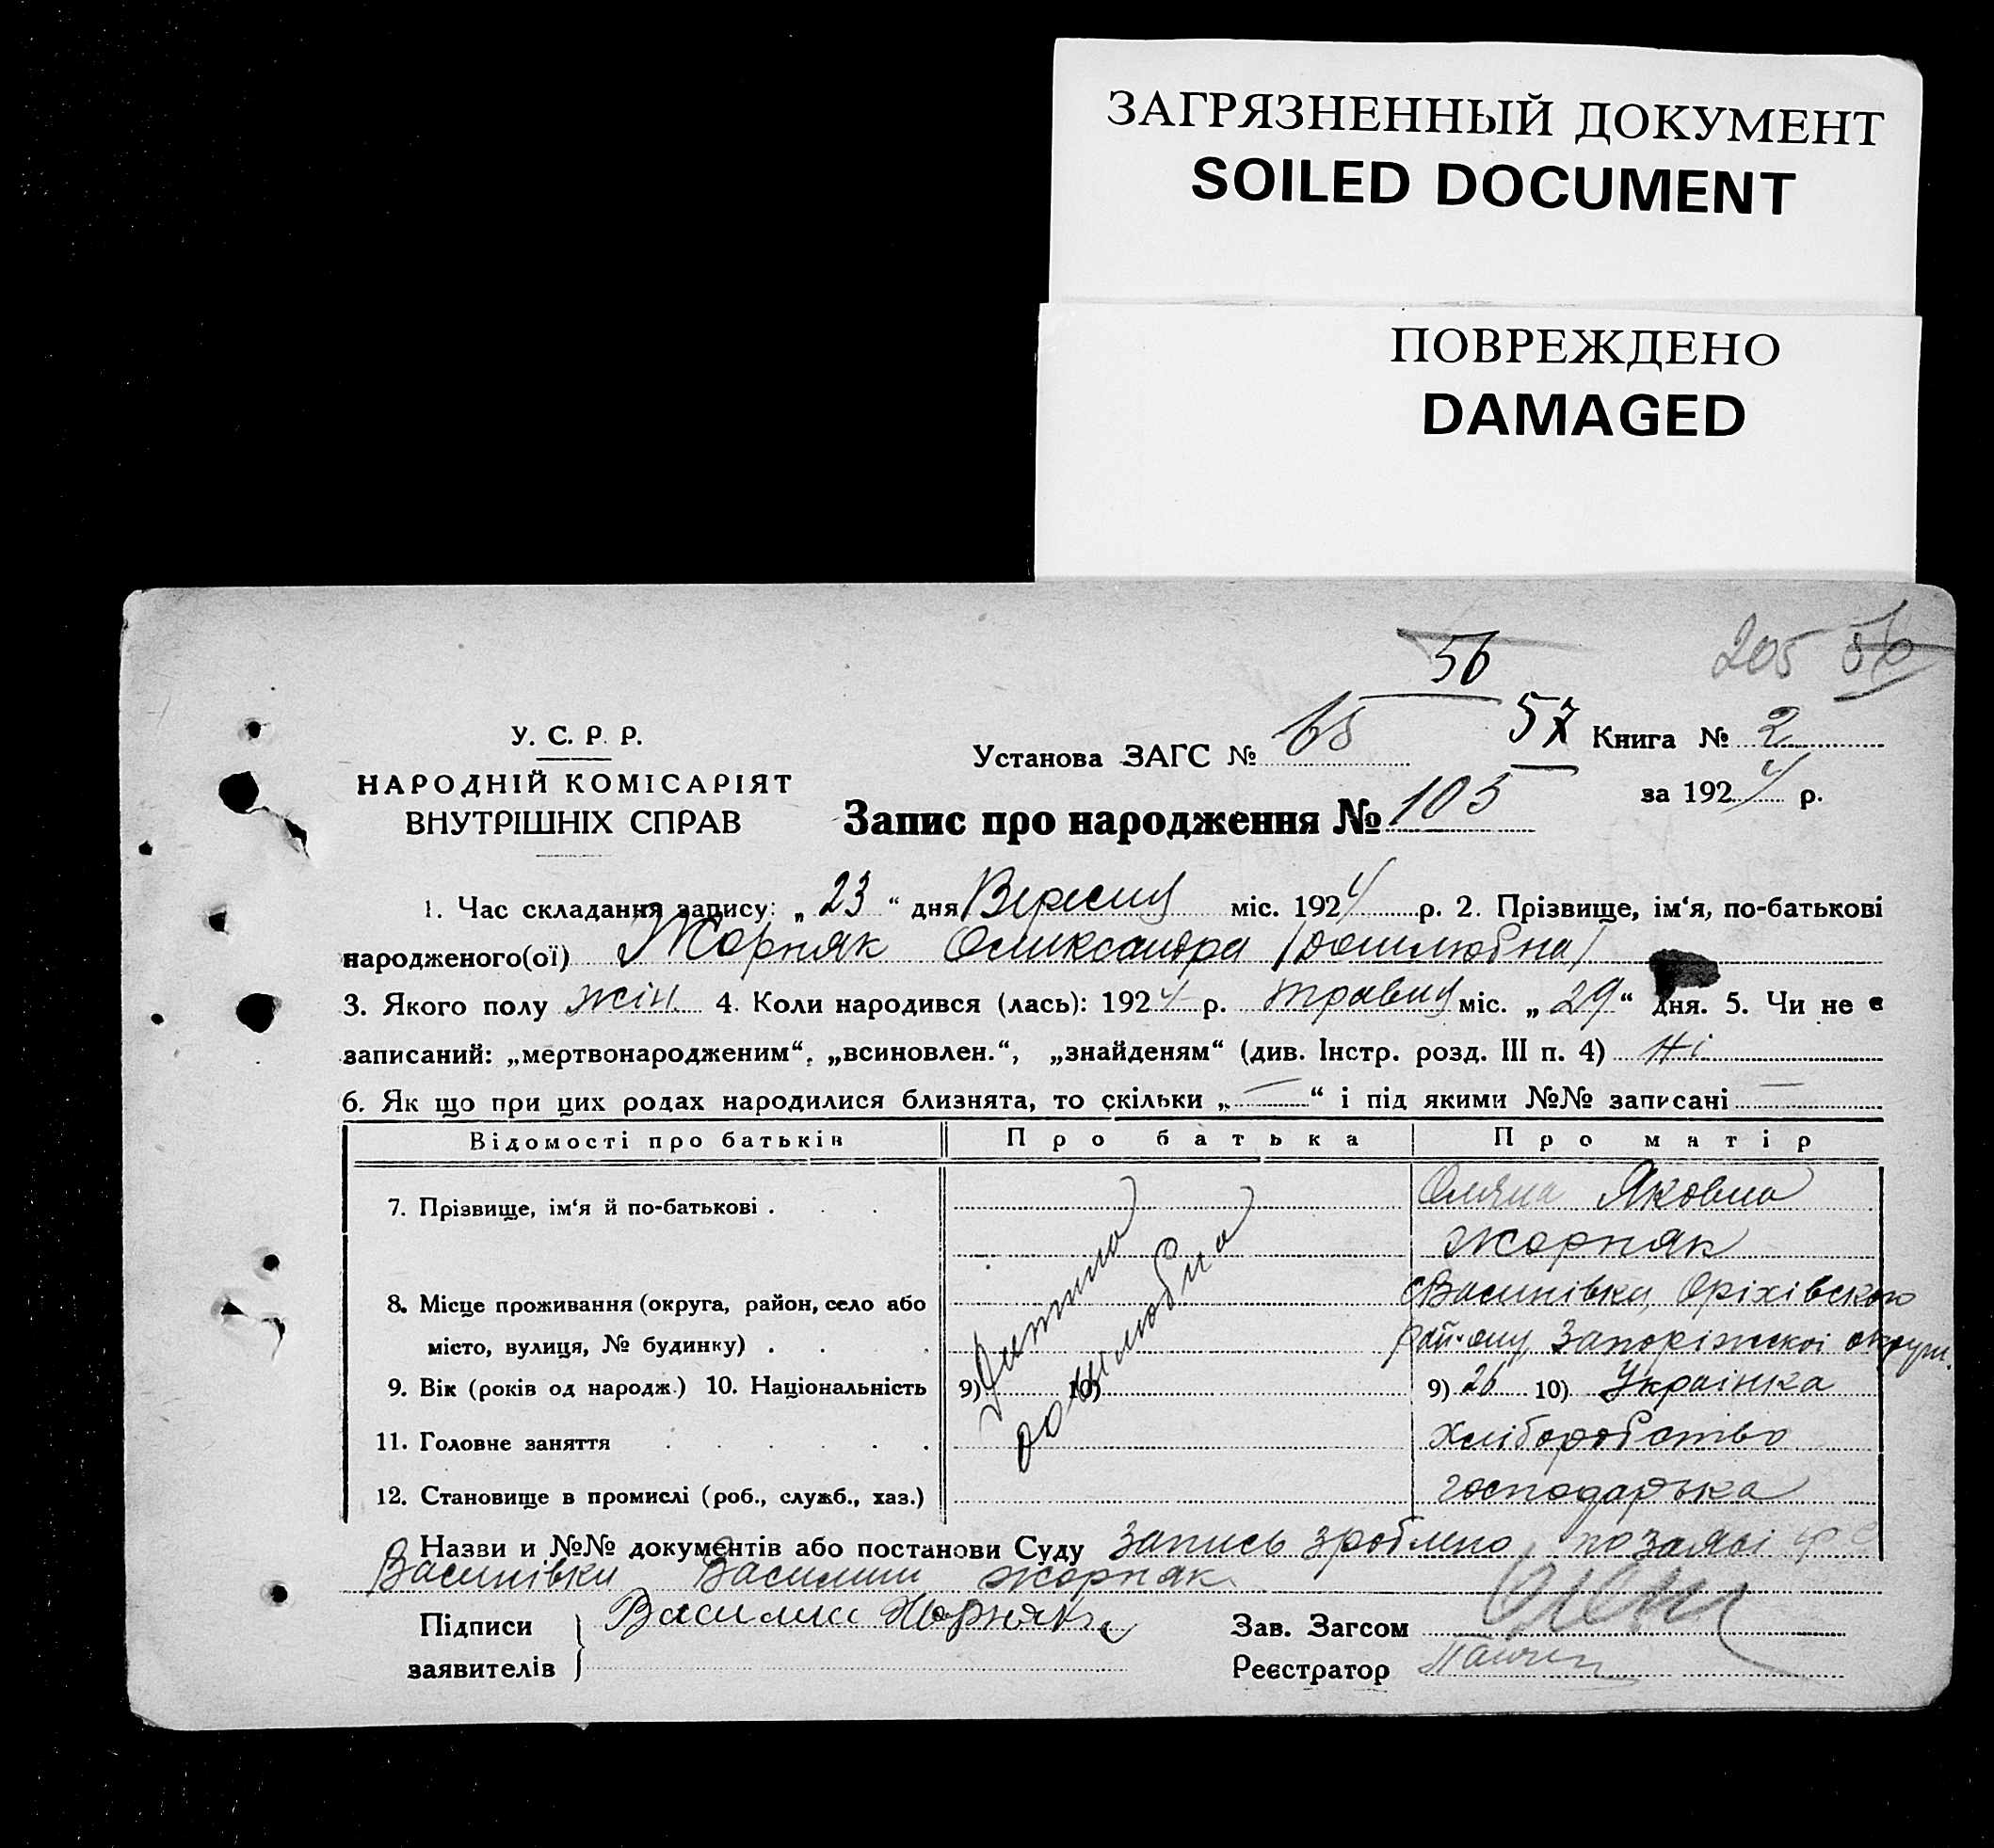 ЗАГРЯЗНЕННЫЙ ДОКУМЕНТ
SOILED DOCUMENT
ПОВРЕЖДЕНО
DAMAGED
205 56
56
У. С. Р. Р.
НАРОДНІЙ КОМІСАРІЯТ
ВНУТРІШНІХ СПРАВ
Установа ЗАГС № 57 Книга № 2
за 1924 р.
Запис про народження № 105
1. Час складання запису: „ 23 “ дня Вересня міс. 1924 р. 2. Прізвище, ім‘я, по-батькові
народженого(ої) Жорняк Олександра /дошлюбна/
3. Якого полу жін. 4. Коли народився (лась): 1924 р. травня міс. „ 29 “ дня. 5. Чи не є
записаний: „мертвонародженим“, „всиновлен.“, „знайденям“ (див. Інстр. розд. III п. 4) Ні
6. Як що при цих родах народилися близнята, то скільки „ — “ і під якими №№ записані —
Відомості про батьків Про батька Про матір
7. Прізвище, ім‘я й по-батькові . . . Яковна
Жорняк
8. Місце проживання (округа, район, село або місто, вулиця, № будинку) . . . Василівка, Оріхівського
району Запоріжскоі округи.
Дитина
дошлюбна
9. Вік (років од народж.) 10. Національність 9) 10) 9) 26 10) Украінка
11. Головне заняття . . . . . . хліборобство
12. Становище в промислі (роб., служб., хаз.) господарька
Назви и №№ документів або постанови Суду Запись зроблено по заяві
Василівки Василини Жорняк
Підписи
заявителів } Василина Жорняк
Зав. Загсом
Реєстратор